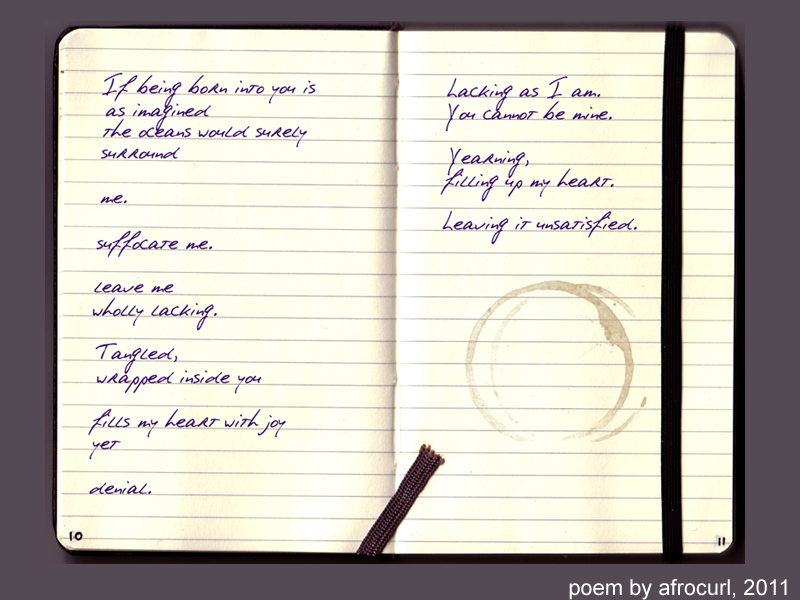 If being born into you is
as imagined
the oceans would surely
surround
me.
suffocate me.
leave me
wholly lacking.
Tangled,
wrapped inside you
fills my heart with joy
yet
denial.
10
Lacking as I am.
You cannot be mine.
Yearning,
filling up my heart.
Leaving it unsatisfied.
11
poem by afrocurl, 2011